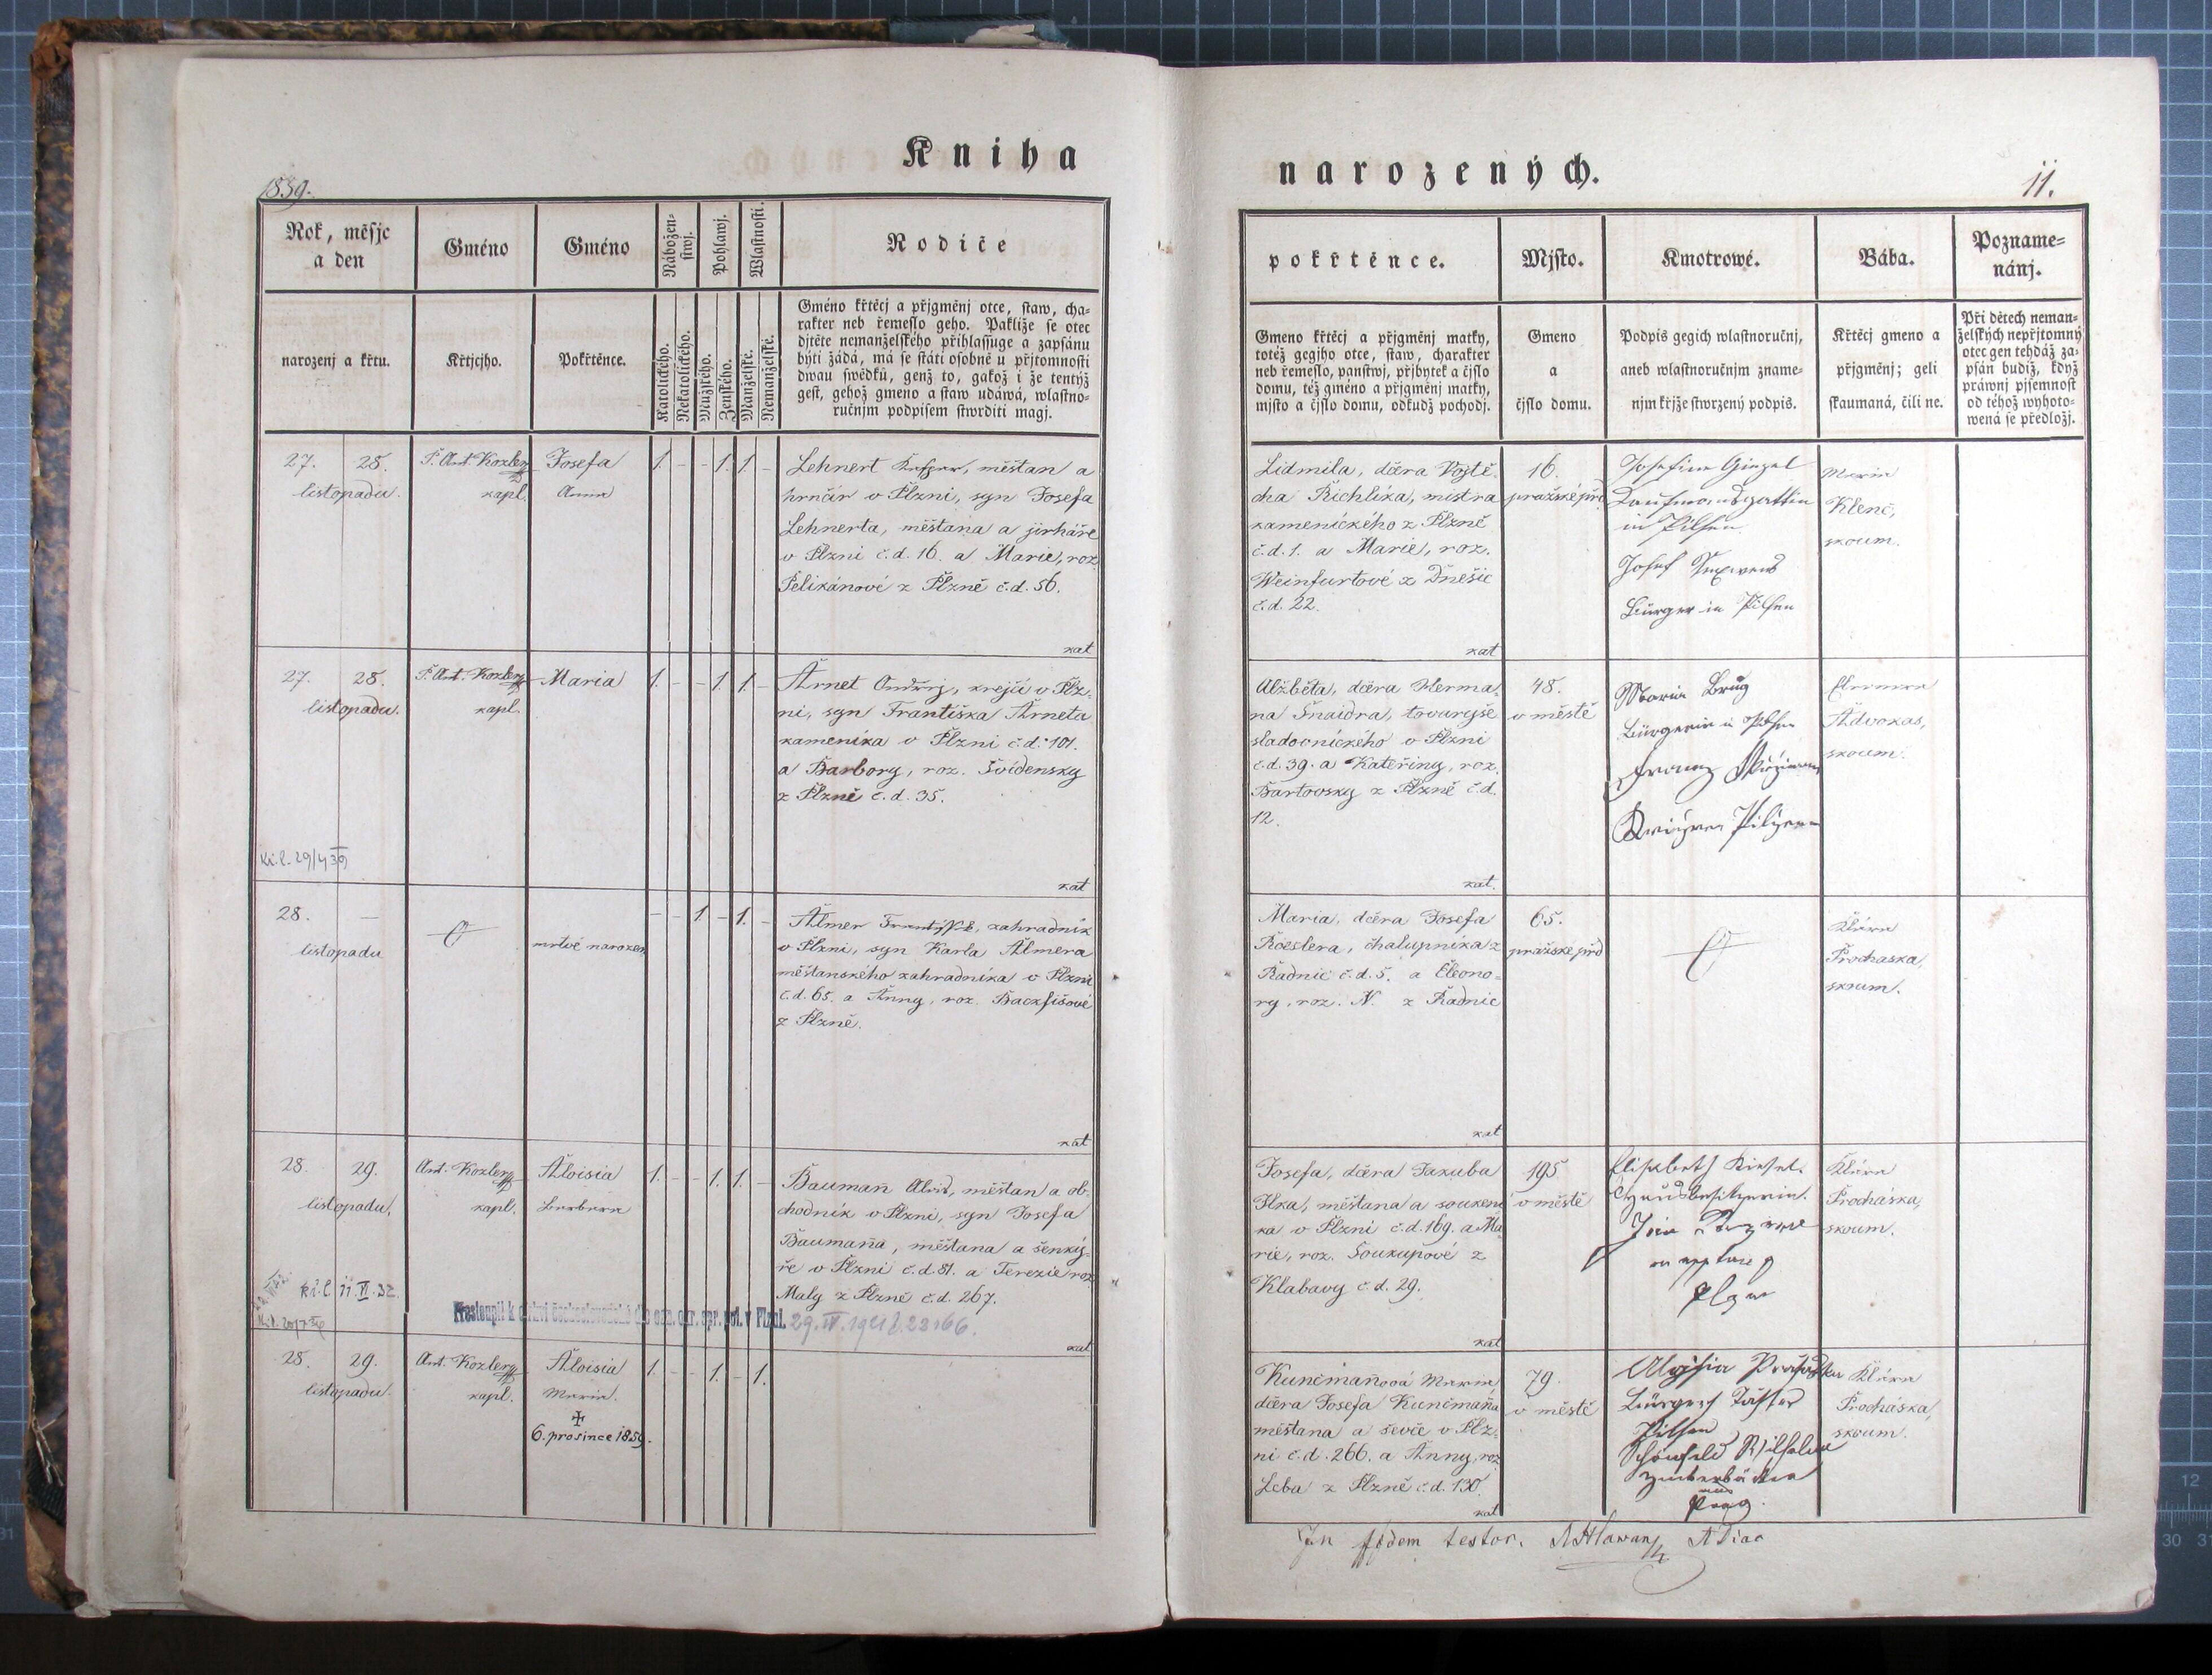 Kniha
1859.
Rok, měsjc
a den
Gméno
Gméno
Nábožen-
stwj.
Pohlawj.
Wlastnosti.
Rodiče
narozenj a křtu.
Křtjcjho.
Pokřtěnce.
Katolického.
Nekatolického.
Mužského.
Ženského.
Manželské.
Nemanželské.
Gméno křtěcj a přjgměnj otce, staw, cha-
rakter neb řemeslo geho. Pakliže se otec
djtěte nemanželského přihlassuge a zapsánu
býti žádá, má se státi osobně u přjtomnosti
dwau swědků, genž to, gakož i že tentýž
gest, gehož gmeno a staw udáwá, wlastno-
ručnjm podpisem stwrditi magj.
27. 28.
listopadu.
P. Ant. Kozler
kapl.
Josefa
Anna
1. - - 1. 1. -
Lehnert, měštan a
hrnčíř v Plzni, syn Josefa
Lehnerta, měštana a jirháře
v Plzni č.d. 16. a Marie, roz.
Pelikánové z Plzně č.d. 56.
kat
27. 28.
listopadu.
P. Ant. Kozler
kapl.
Maria
1. - - 1. 1. -
Arnet Ondřej, krejčí v Plz-
ni, syn Františka Arneta
kameníka v Plzni č.d. 101.
a Barbory, roz. Svidensky
z Plzně č.d. 35.
kat
28. -
listopadu
mrtvě narozen
- - 1. - 1. -
Almer František, zahradník
v Plzni, syn Karla Almera
měštanského zahradníka v Plzni
č.d. 65. a Anny, roz. Backfišové
z Plzně.
kat
28. 29.
listopadu.
Ant. Kozler
kapl.
Aloisia
Barbara
1. - - 1. 1. -
Baumañ Alois, měštan a ob-
chodník v Plzni, syn Josefa
Baumaña, měštana a šenký-
ře v Plzni č.d. 81. a Terezie roz.
Maly z Plzně č.d. 267.
kř.l. 11.VI.32.
29.IV.1921
kat
28. 29.
listopadu.
Ant. Kozler
kapl.
Aloisia
Maria.
6. prosince 1859.
1. - - 1. - 1.
narozených.
11.
pokřtěnce.
Mjsto.
Kmotrowé.
Bába.
Pozname-
nánj.
Gmeno křtěcj a přjgměnj matky,
totéž gegjho otce, staw, charakter
neb řemeslo, panstwj, přjbytek a čjslo
domu, též gméno a přjgměnj matky,
mjsto a čjslo domu, odkudž pochodj.
Gmeno
a
čjslo domu.
Podpis gegich wlastnoručnj,
aneb wlastnoručnjm zname-
njm křjže stwrzený podpis.
Křtěcj gmeno a
přjgměnj; geli
skaumaná, čili ne.
Při dětech neman-
želských nepřjtomný
otec gen tehdáž za-
psán budiž, když
práwnj pjsemnost
od téhož wyhoto-
wená se předložj.
Lidmila, dcera Vojtě-
cha Richlíka, mistra
kamenického z Plzně
č.d. 1. a Marie, roz.
Weinfurtové z Dnešic
č.d. 22.
kat
16.
pražské přd
Josefine Ginzel
Kaufmansgattin
in Pilsen
Josef
Bürger in Pilsen
Maria
Klenč,
skoum.
Alžběta, dcera Herma-
na Šnaidra, tovaryše
sladovnického v Plzni
č.d. 39. a Kateřiny, roz.
Bartovsky z Plzně č.d.
12.
kat.
48.
v městě
Maria
Bürgerin in Pilsen
Franz
Eleonora
Advokas,
skoum.
Maria, dcera Josefa
Roeslera, chalupníka z
Radnic č.d. 5. a Eleono-
ry, roz. N. z Radnic
kat
65.
pražské přd
Klára
Prochaska,
skoum.
Josefa, dcera Jakuba
Ilka, měštana a soukení-
ka v Plzni č.d. 169. a Ma-
rie, roz. Soukupové z
Klabavy č.d. 29.
kat
195
v městě
Elisabeth
Hausbesitzerin.
Klára
Procháska,
skoum.
Kunčmañová Marie,
dcera Josefa Kunčmaña
měštana a ševče v Plz-
ni č.d. 266. a Anny, roz.
Leba z Plzně č.d. 130.
kat
79.
v městě
Aloysia
Bürgers Tochter
Pilsen
Schönfeld
Zuckerbäcker
aus
Prag.
Klára
Procháska,
skoum.
In fidem testor.